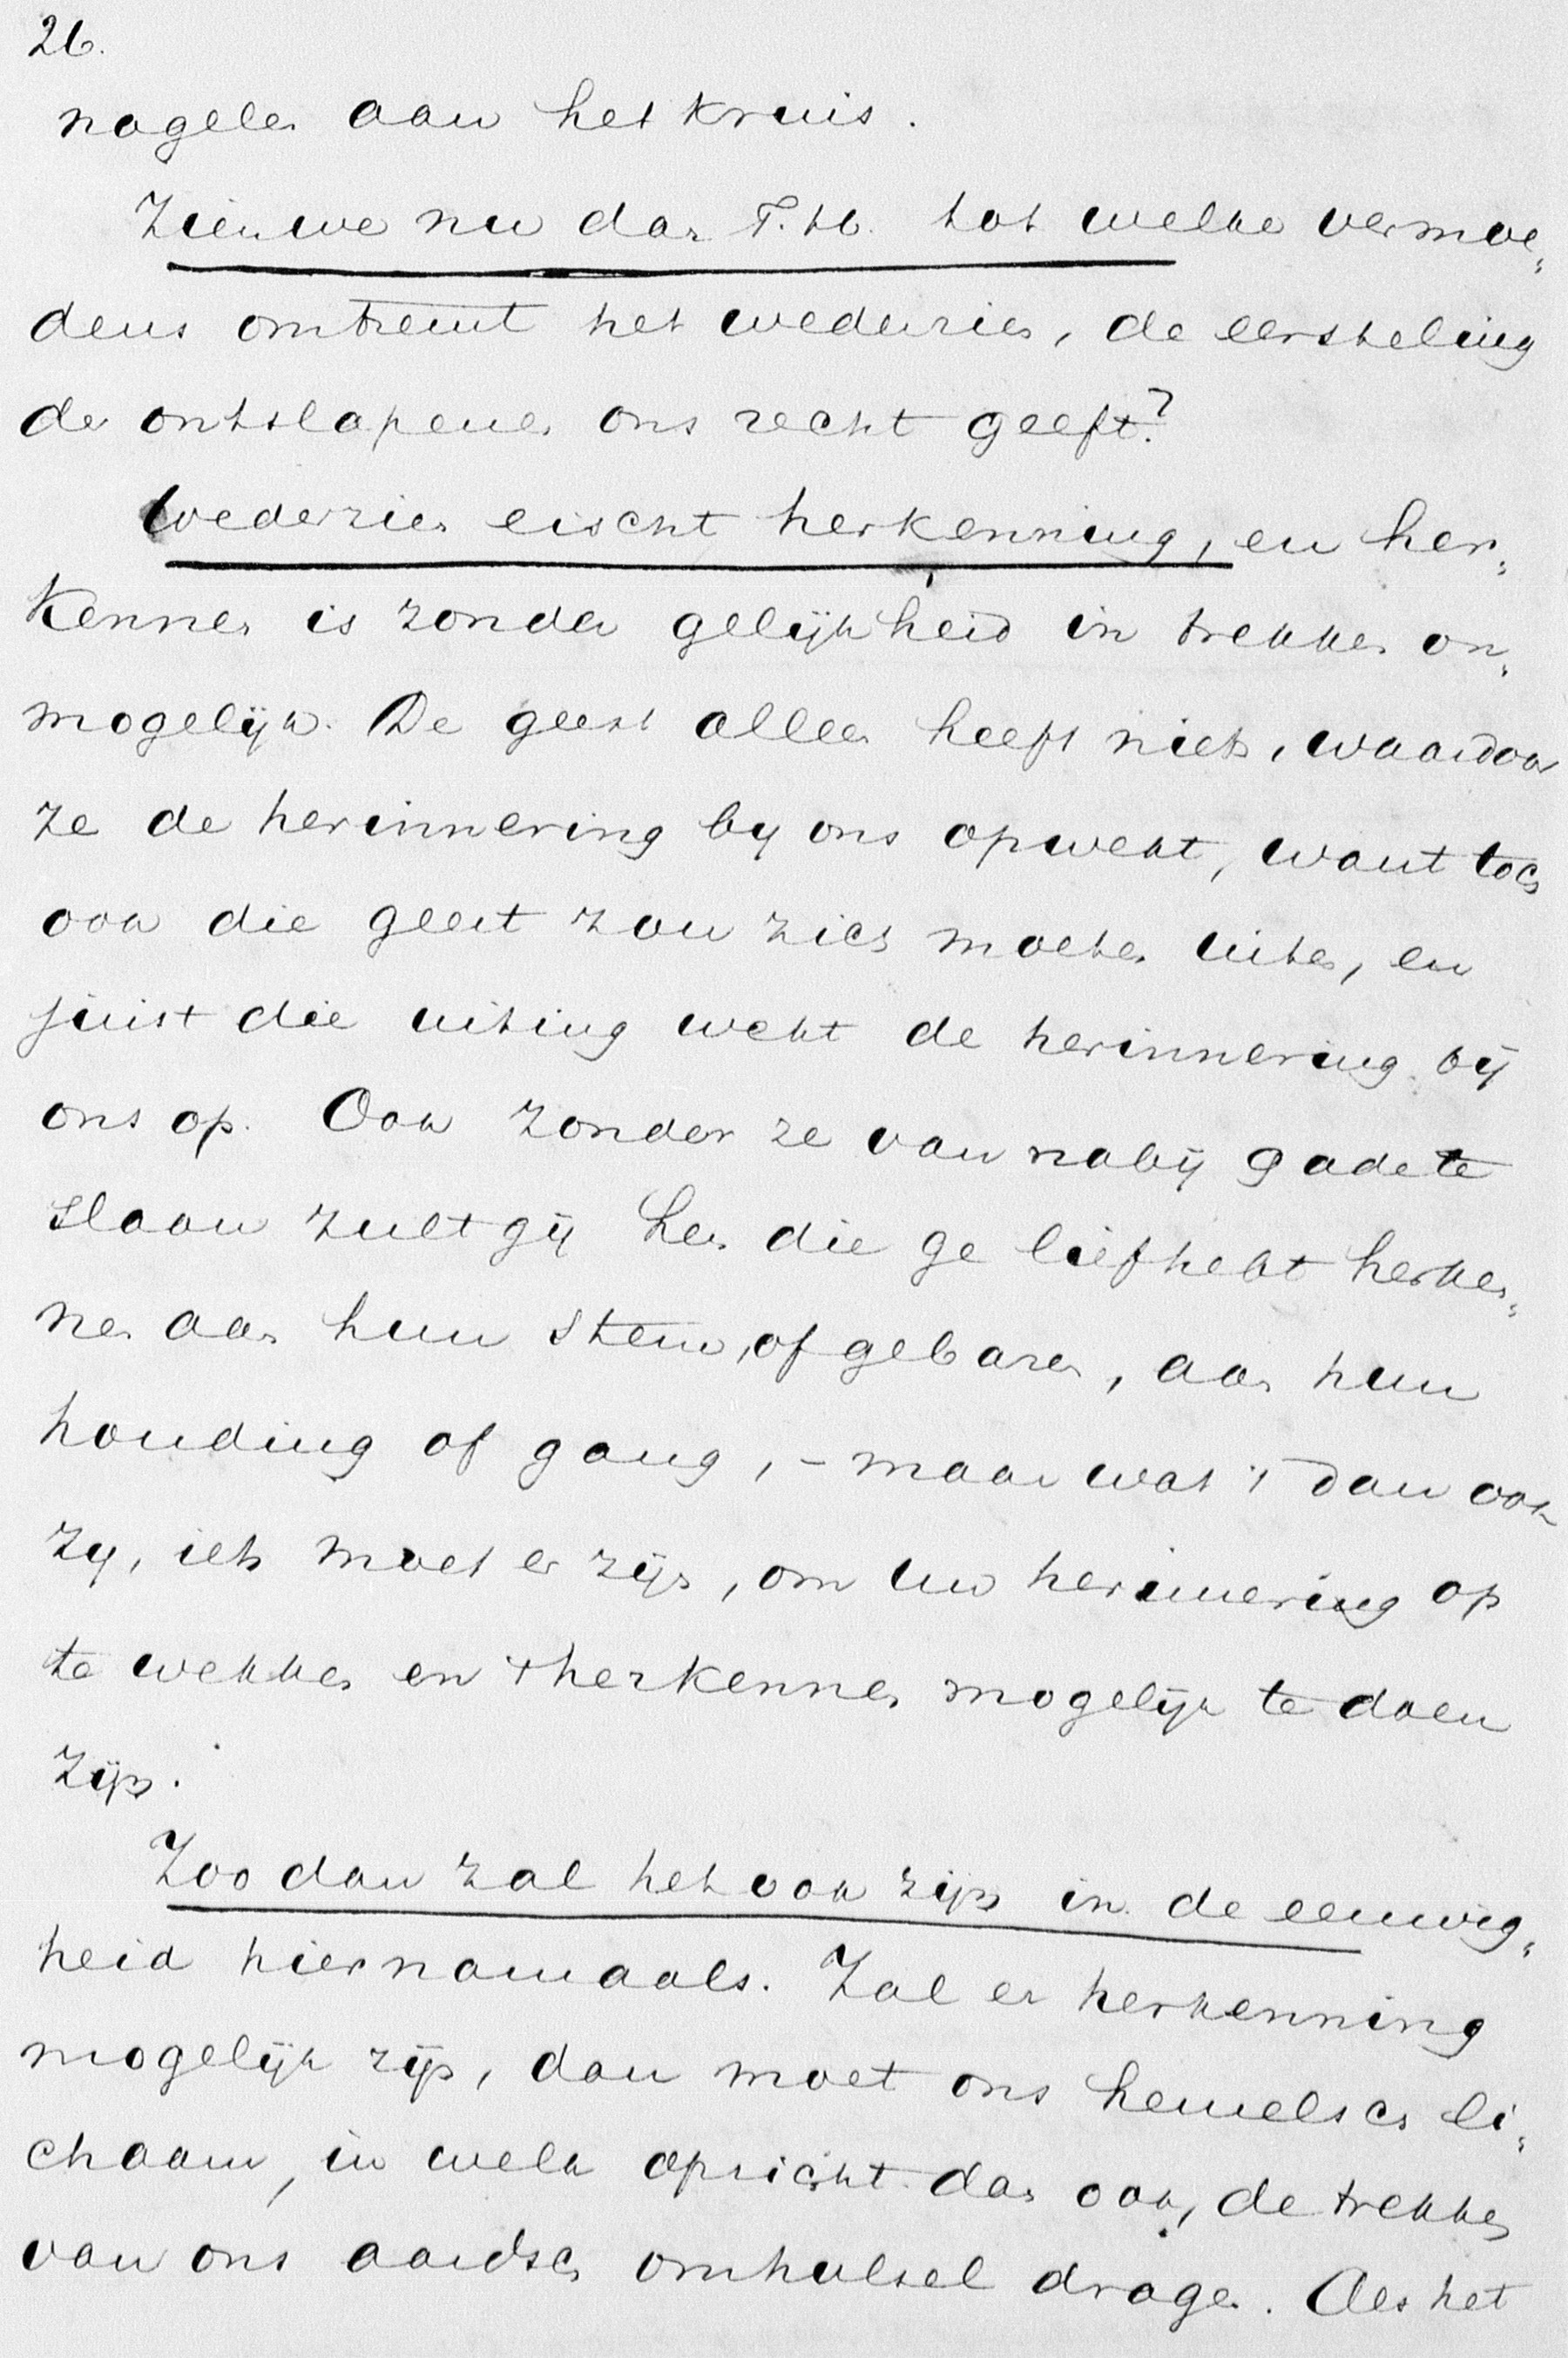 26.
nagelen aan het kruis.
Zien we nu dan T.H. tot welke vermoe„
dens omtrent het wederzien, de eersteling
der ontslapenen ons recht geeft?
Wederzien eischt herkenning, en her„
kennen is zonder gelijkheid in trekken on„
mogelijk. De geest alleen heeft niets, waardoor
ze de herinnering by ons opwekt, want toch
ook die geest zou zich moeten uiten, en
juist die uiting wekt de herinnering bij
ons op. Ook zonder ze van nabij gade te
slaan zult gij hen die ge liefhebt herken„
nen aan hun stem, of gebaren, aan hun
houding of gang, – maar wat 't dan ook
zy, iets moet er zijn, om uw herinnering op
te wekken en 't herkennen mogelijk te doen
zijn.
Zoo dan zal het ook zijn in de eeuwig„
heid hiernamaals. Zal er herkenning
mogelijk zijn, dan moet ons hemelsch li„
chaam, in welk opzicht dan ook, de trekken
van ons aardsch omhulsel dragen. Als het